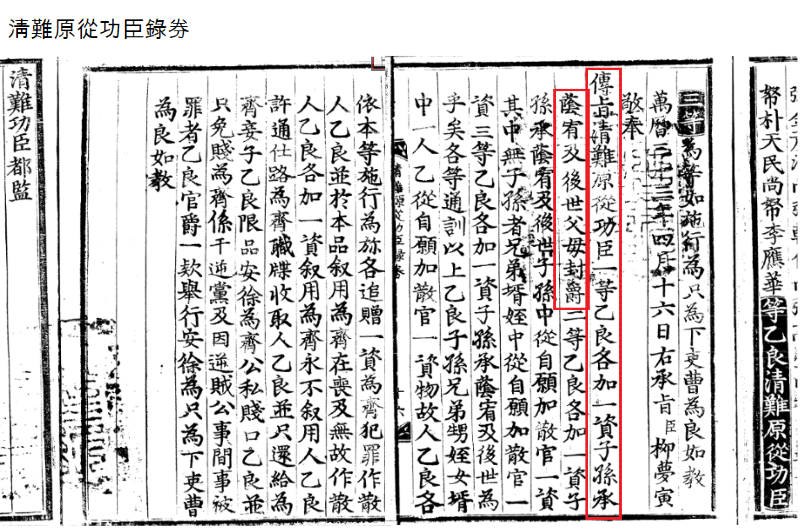 淸難原從功臣錄券
帑朴天民尚帑李應華等乙良清難原從功臣
三等為等如施行為只為下吏曹為良如敎
萬曆三十三年四月十六日右承旨臣柳夢寅
敬奉
傳旨清難原從功臣一等乙良各加一資子孫承
蔭宥及後世父母封爵二等乙良各加一資子
孫承蔭宥及後世子孫中從自願加散官一資
其中無子孫者兄弟壻姪中從自願加散官一
資三等乙良各加一資子孫承蔭宥及後世為
乎矣各等通訓以上乙良子孫兄弟甥姪女壻
中一人乙從自願加散官一資物故人乙良各
清難原從功臣錄券
十六
依本等施行為旀各追贈一資為齊犯罪作散
人乙良並於本品叙用為齊在喪及無故作散
人乙良各加一資叙用為齊永不叙用人乙良
許通仕路為齊職牒收取人乙良並只還給為
齊妾子乙良限品安徐為齊公私賤口乙良並
只免賤為齊係干逆黨及因逆賊公事間事被
罪者乙良官爵一款舉行安徐為只為下吏曹
為良如敎
清難功臣都監